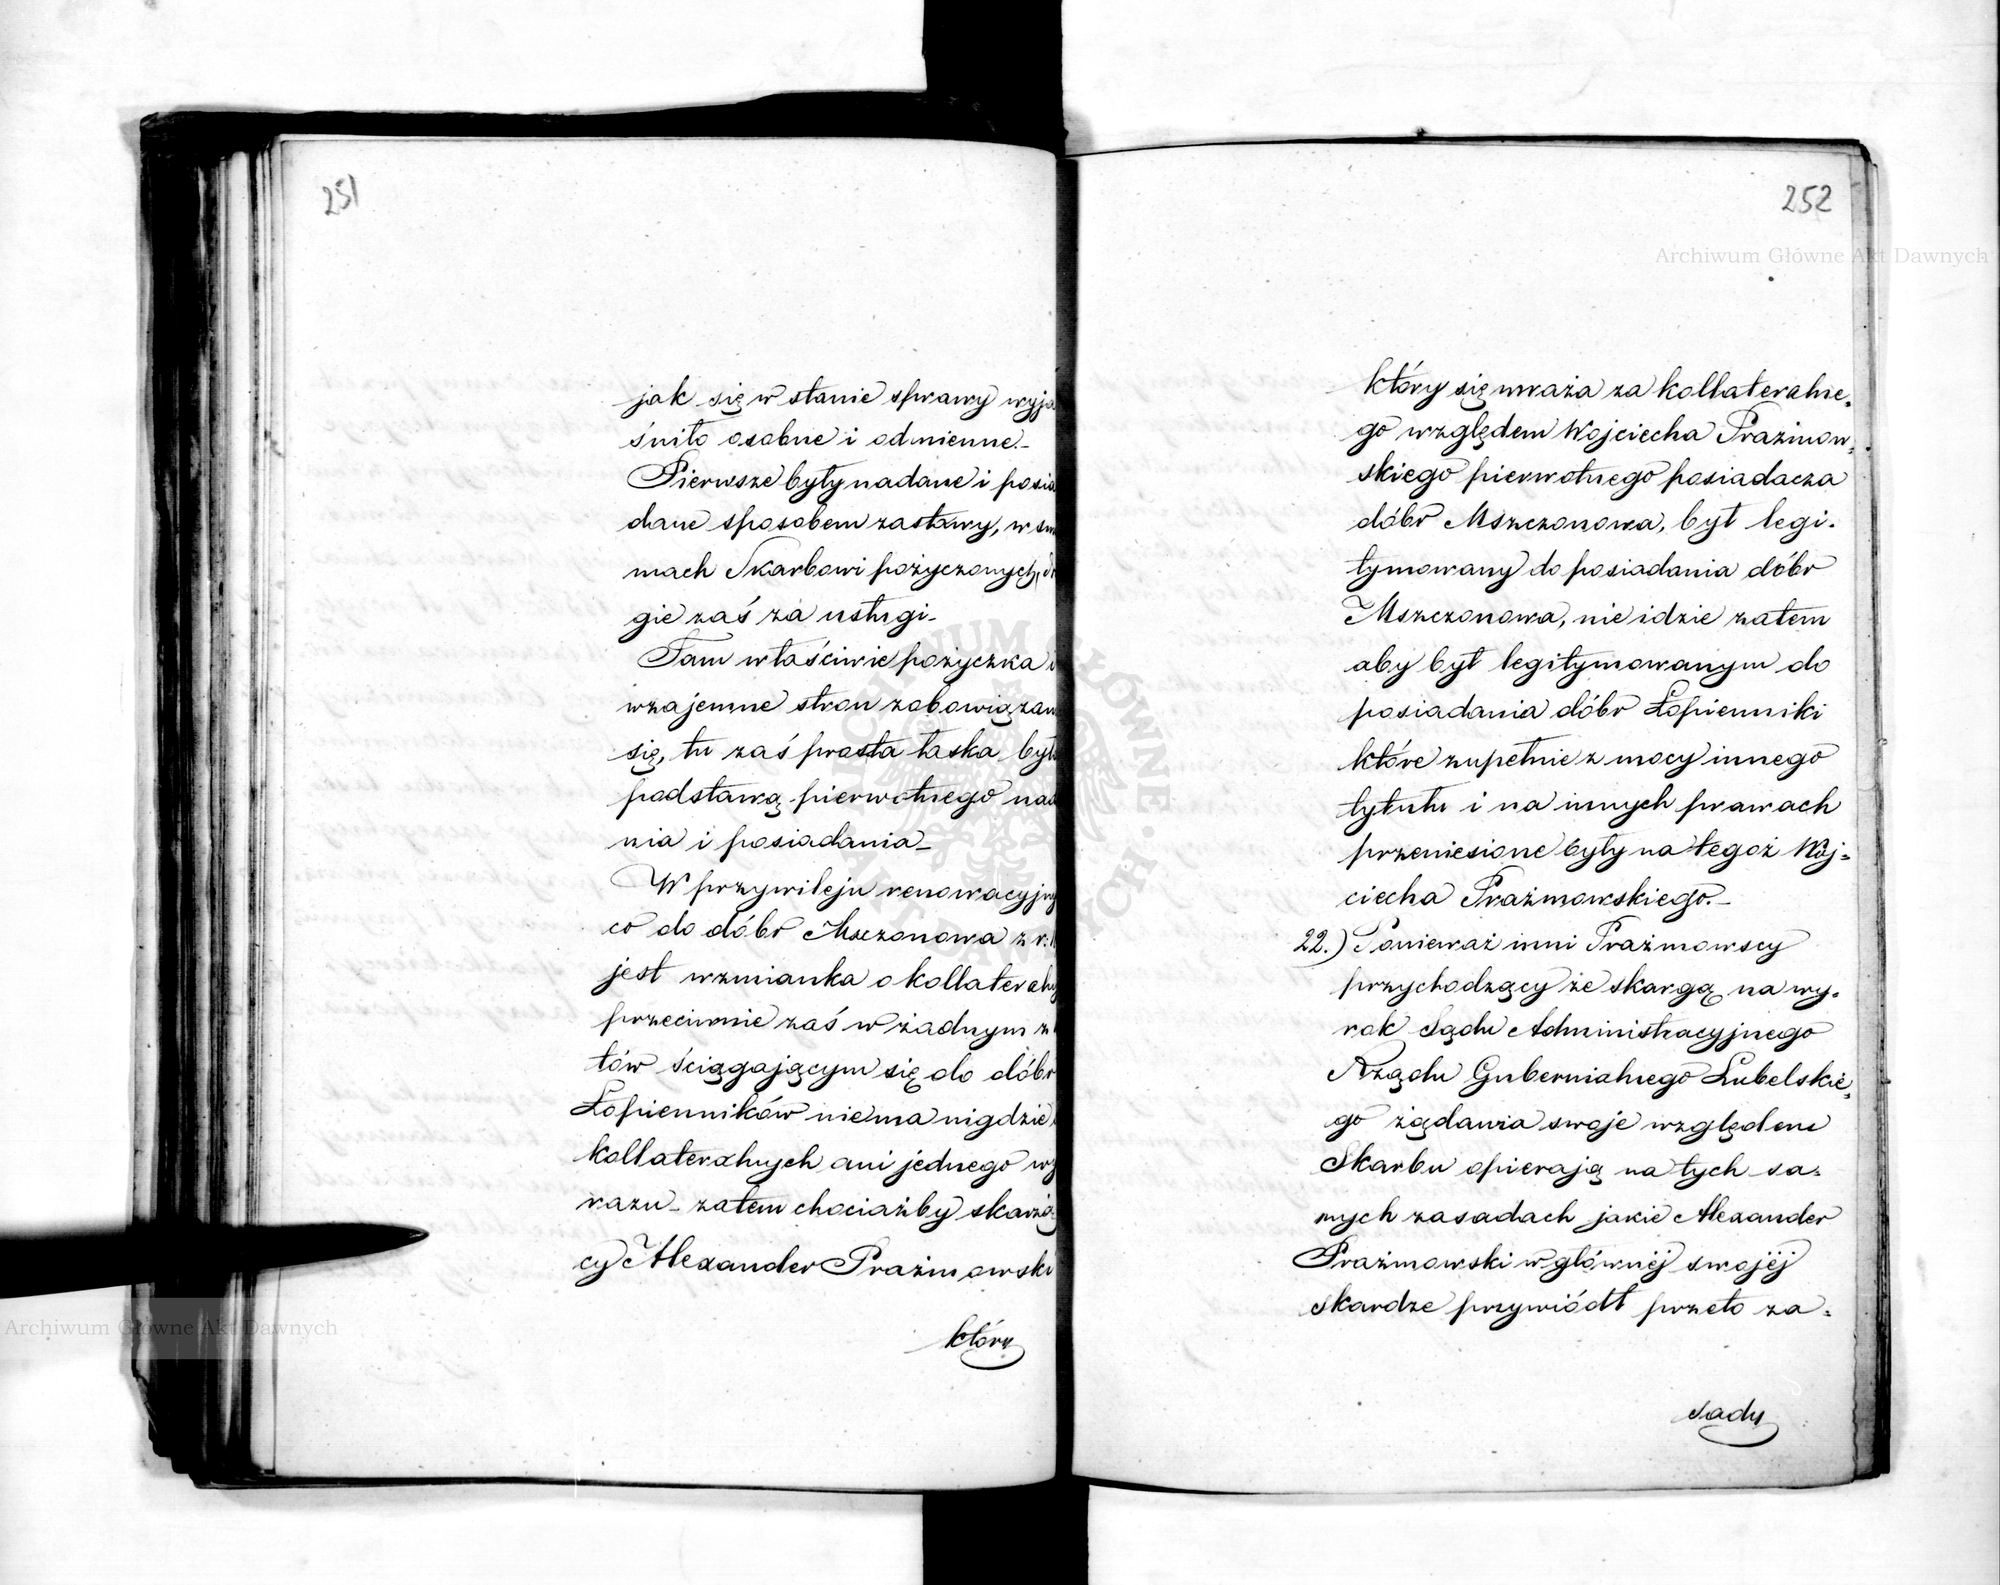 251
jak się w stanie sprawy wyja
śniło osobne i odmienne._
Pierwsze były nadane i posia
dane sposobem zastawy, w su
mach Skarbowi pożyczonych, d
gie zaś za usługi._
Tam właściwie pożyczka i
wzajemne stron zobowiązan
się, tu zaś prosta łaska był
podstawą pierwotnego nad
nia i posiadania_
W przywileju renowacyjny
co do dóbr Mszczonowa z r.
jest wzmianka o kollateraln
przeciwnie zaś w żadnym z
tów ściągającym się do dóbr
Łopienników niema nigdzie
kollateralnych ani jednego wy
razu_ zatem chociażby skarżą:
cy Alexander Prażmowski
który
252
który się uważa za kollateralne=
go względem Wojciecha Prażmow=
skiego pierwotnego posiadacza
dóbr Mszczonowa, był legi=
tymowany do posiadania dóbr
Mszczonowa, nie idzie zatem
aby był legitymowanym do
posiadania dóbr Łopienniki
które zupełnie z mocy innego
tytułu i na innych prawach
przeniesione były na tegoż Woj=
ciecha Prażmowskiego._
22.) Ponieważ inni Prażmowscy
przychodzący ze skargą na wy=
rok Sądu Administracyjnego
Rządu Gubernialnego Lubelskie=
go żądania swoje względem
Skarbu opierają na tych sa=
mych zasadach jakie Alexander
Prażmowski w głównéj swojéj
skardze przywiódł przeto za=
sady
Archiwum Główne Akt Dawnych
Archiwum Główne Akt Dawnych